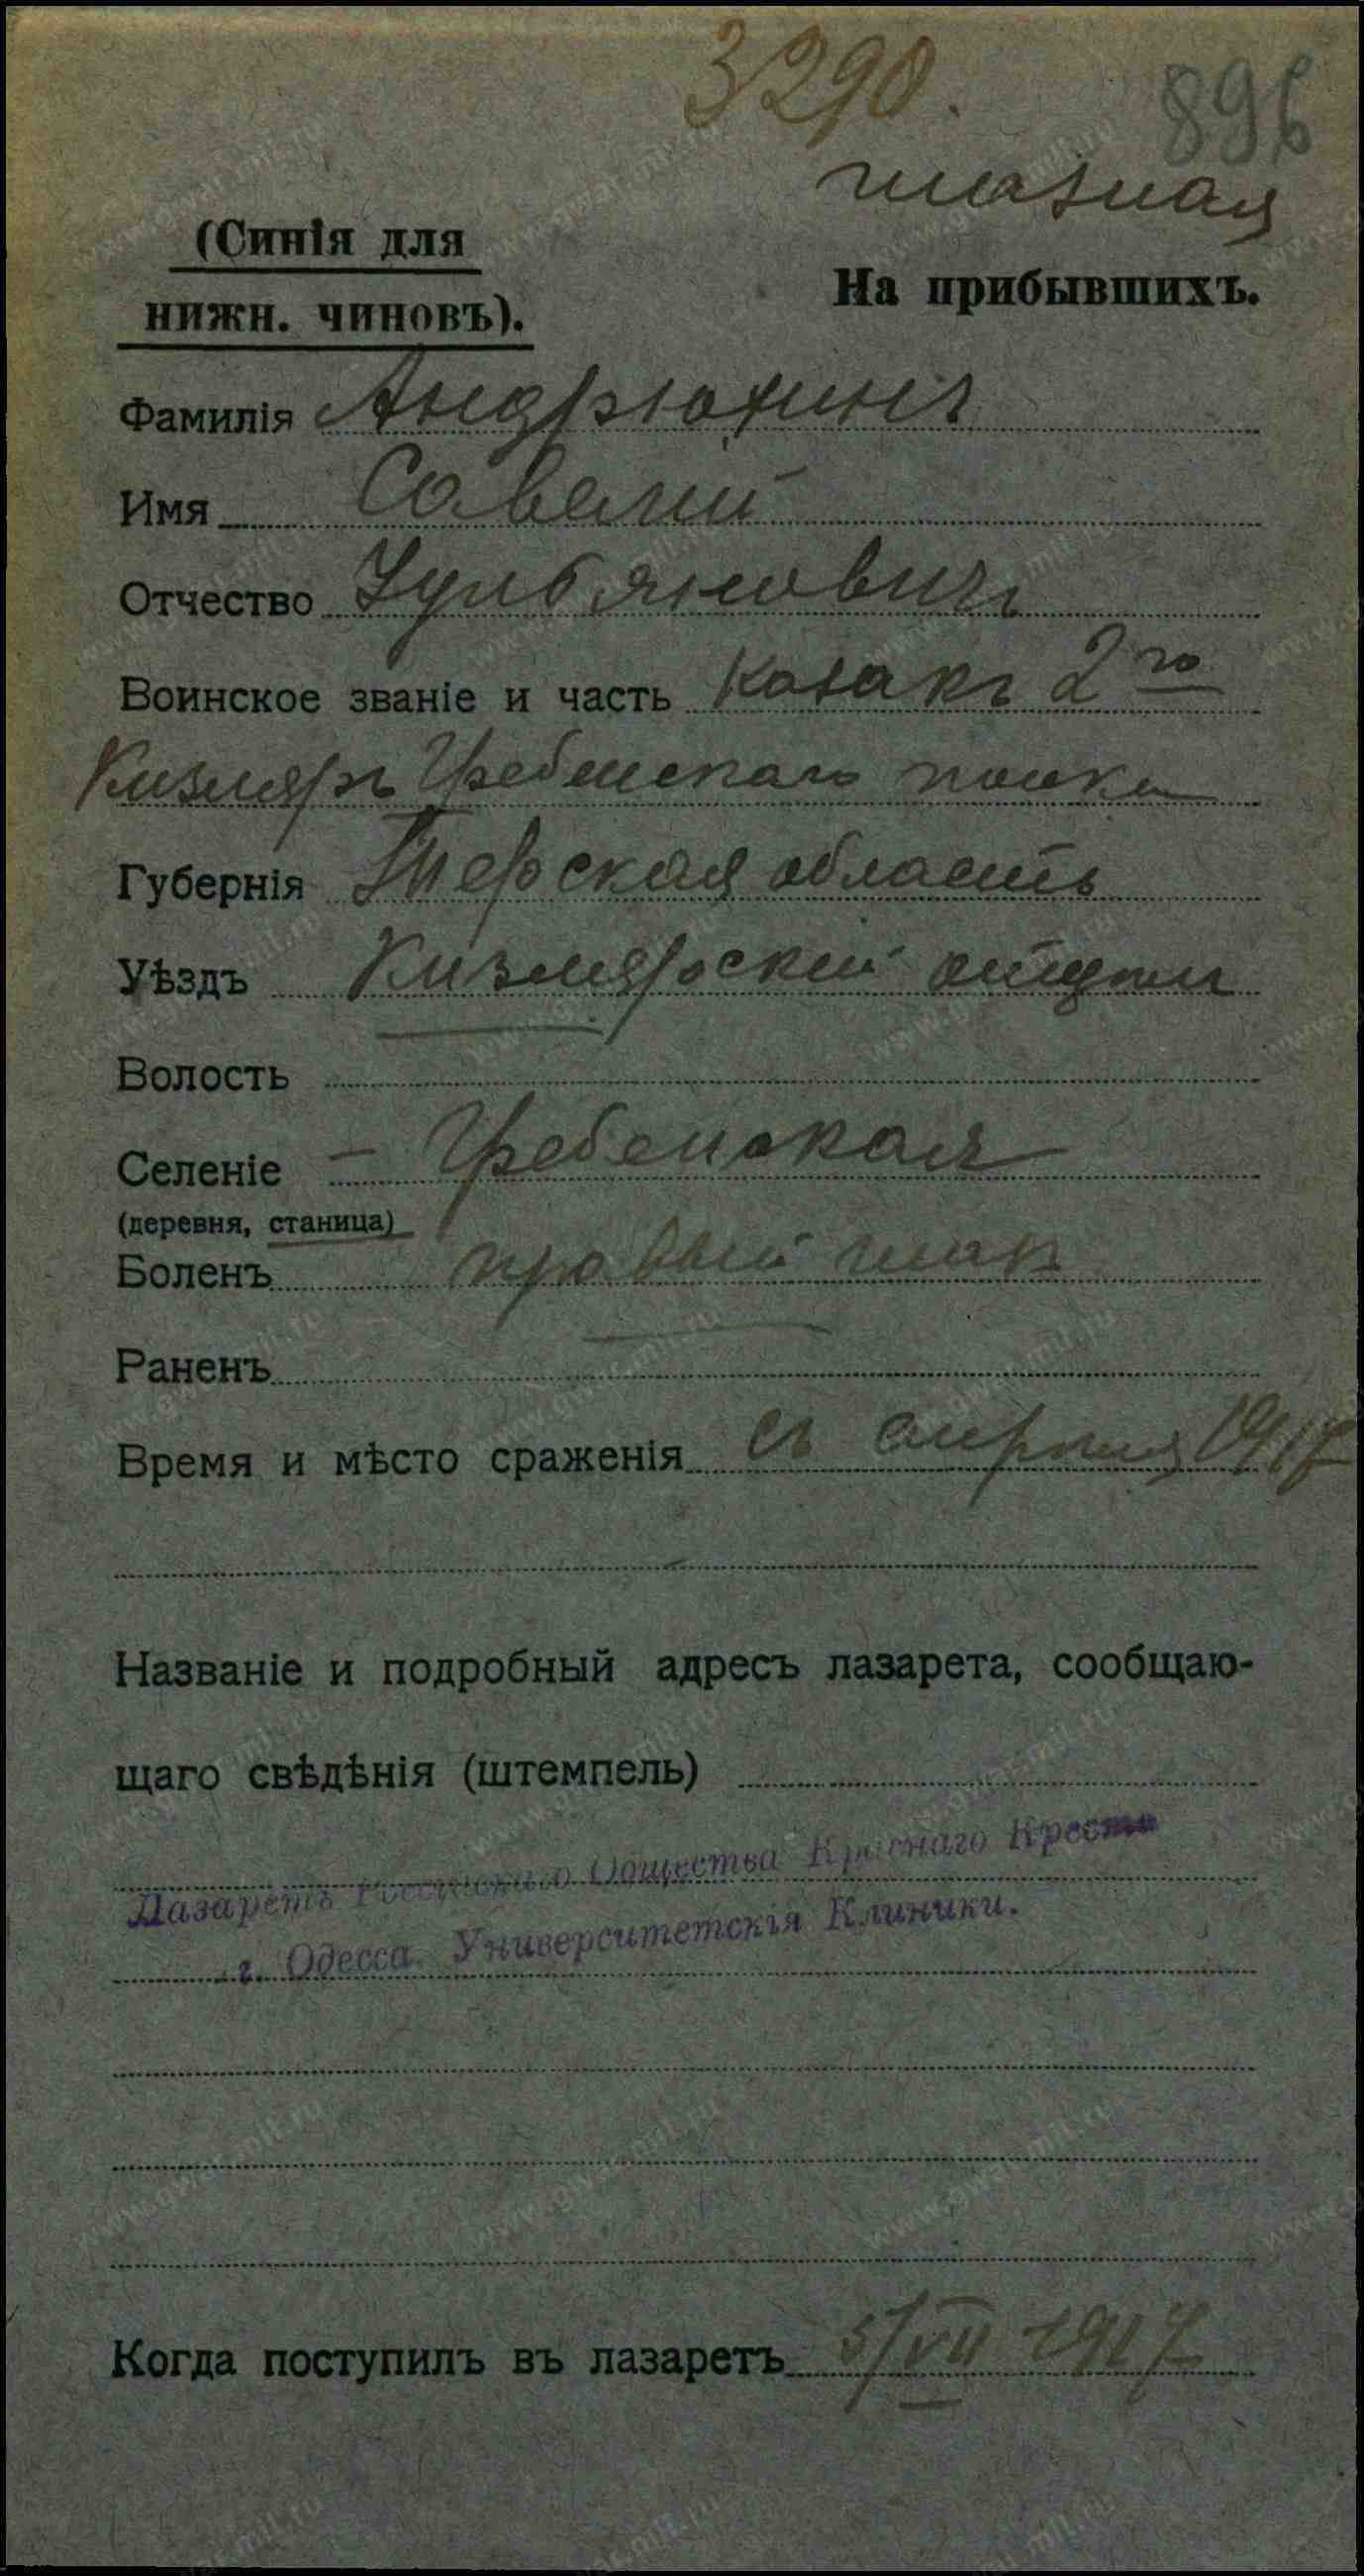 3290.
896
глазная
(Синія для
нижн. чиновъ).
На прибывшихъ.
Фамилія Андрюхинъ
Имя Савелій
Отчество Ульяновичъ
Воинское званіе и часть Козакъ 2го
Кизляръ Гребенскаго полка
Губернія Терская область
Уѣздъ Кизлярскій отдѣлъ
Волость
Селеніе - Гребенская
(деревня, станица)
Боленъ правый глаз
Раненъ
Время и мѣсто сраженія съ апрѣля 1917
Названіе и подробный адресъ лазарета, сообщаю-
щаго свѣдѣнія (штемпель)
Лазаретъ Россійскаго Общества Краснаго Креста
г. Одесса. Университетскія Клиники.
Когда поступилъ въ лазаретъ 5/VII 1917